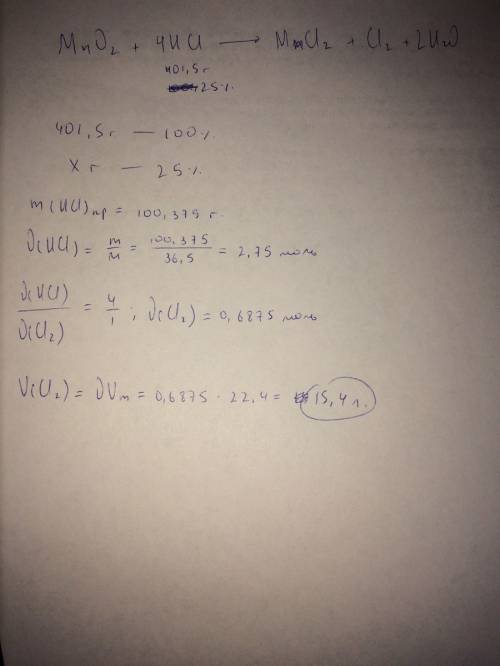 MnO₂ + 4HCl ⟶ MnCl₂ + Cl₂ + 2H₂O
401,5 г
25%
401,5 г — 100%
X г — 25%
m(HCl)пр = 100,375 г.
ν(HCl) = m/M = 100,375/36,5 = 2,75 моль
ν(HCl)/ν(Cl₂) = 4/1 ; ν(Cl₂) = 0,6875 моль
V(Cl₂) = νVm = 0,6875 · 22,4 = 15,4 л.